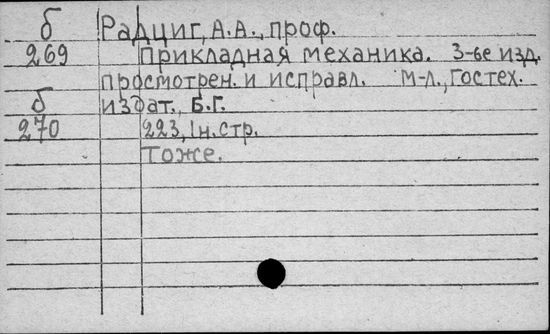 б Радциг, А.А., проф.
269 Прикладная механика. 3-ье изд.
просмотрен. и исправл. М-л., Гостех.
б издат., Б.Г.
270 223, Iн. стр.
Тоже.